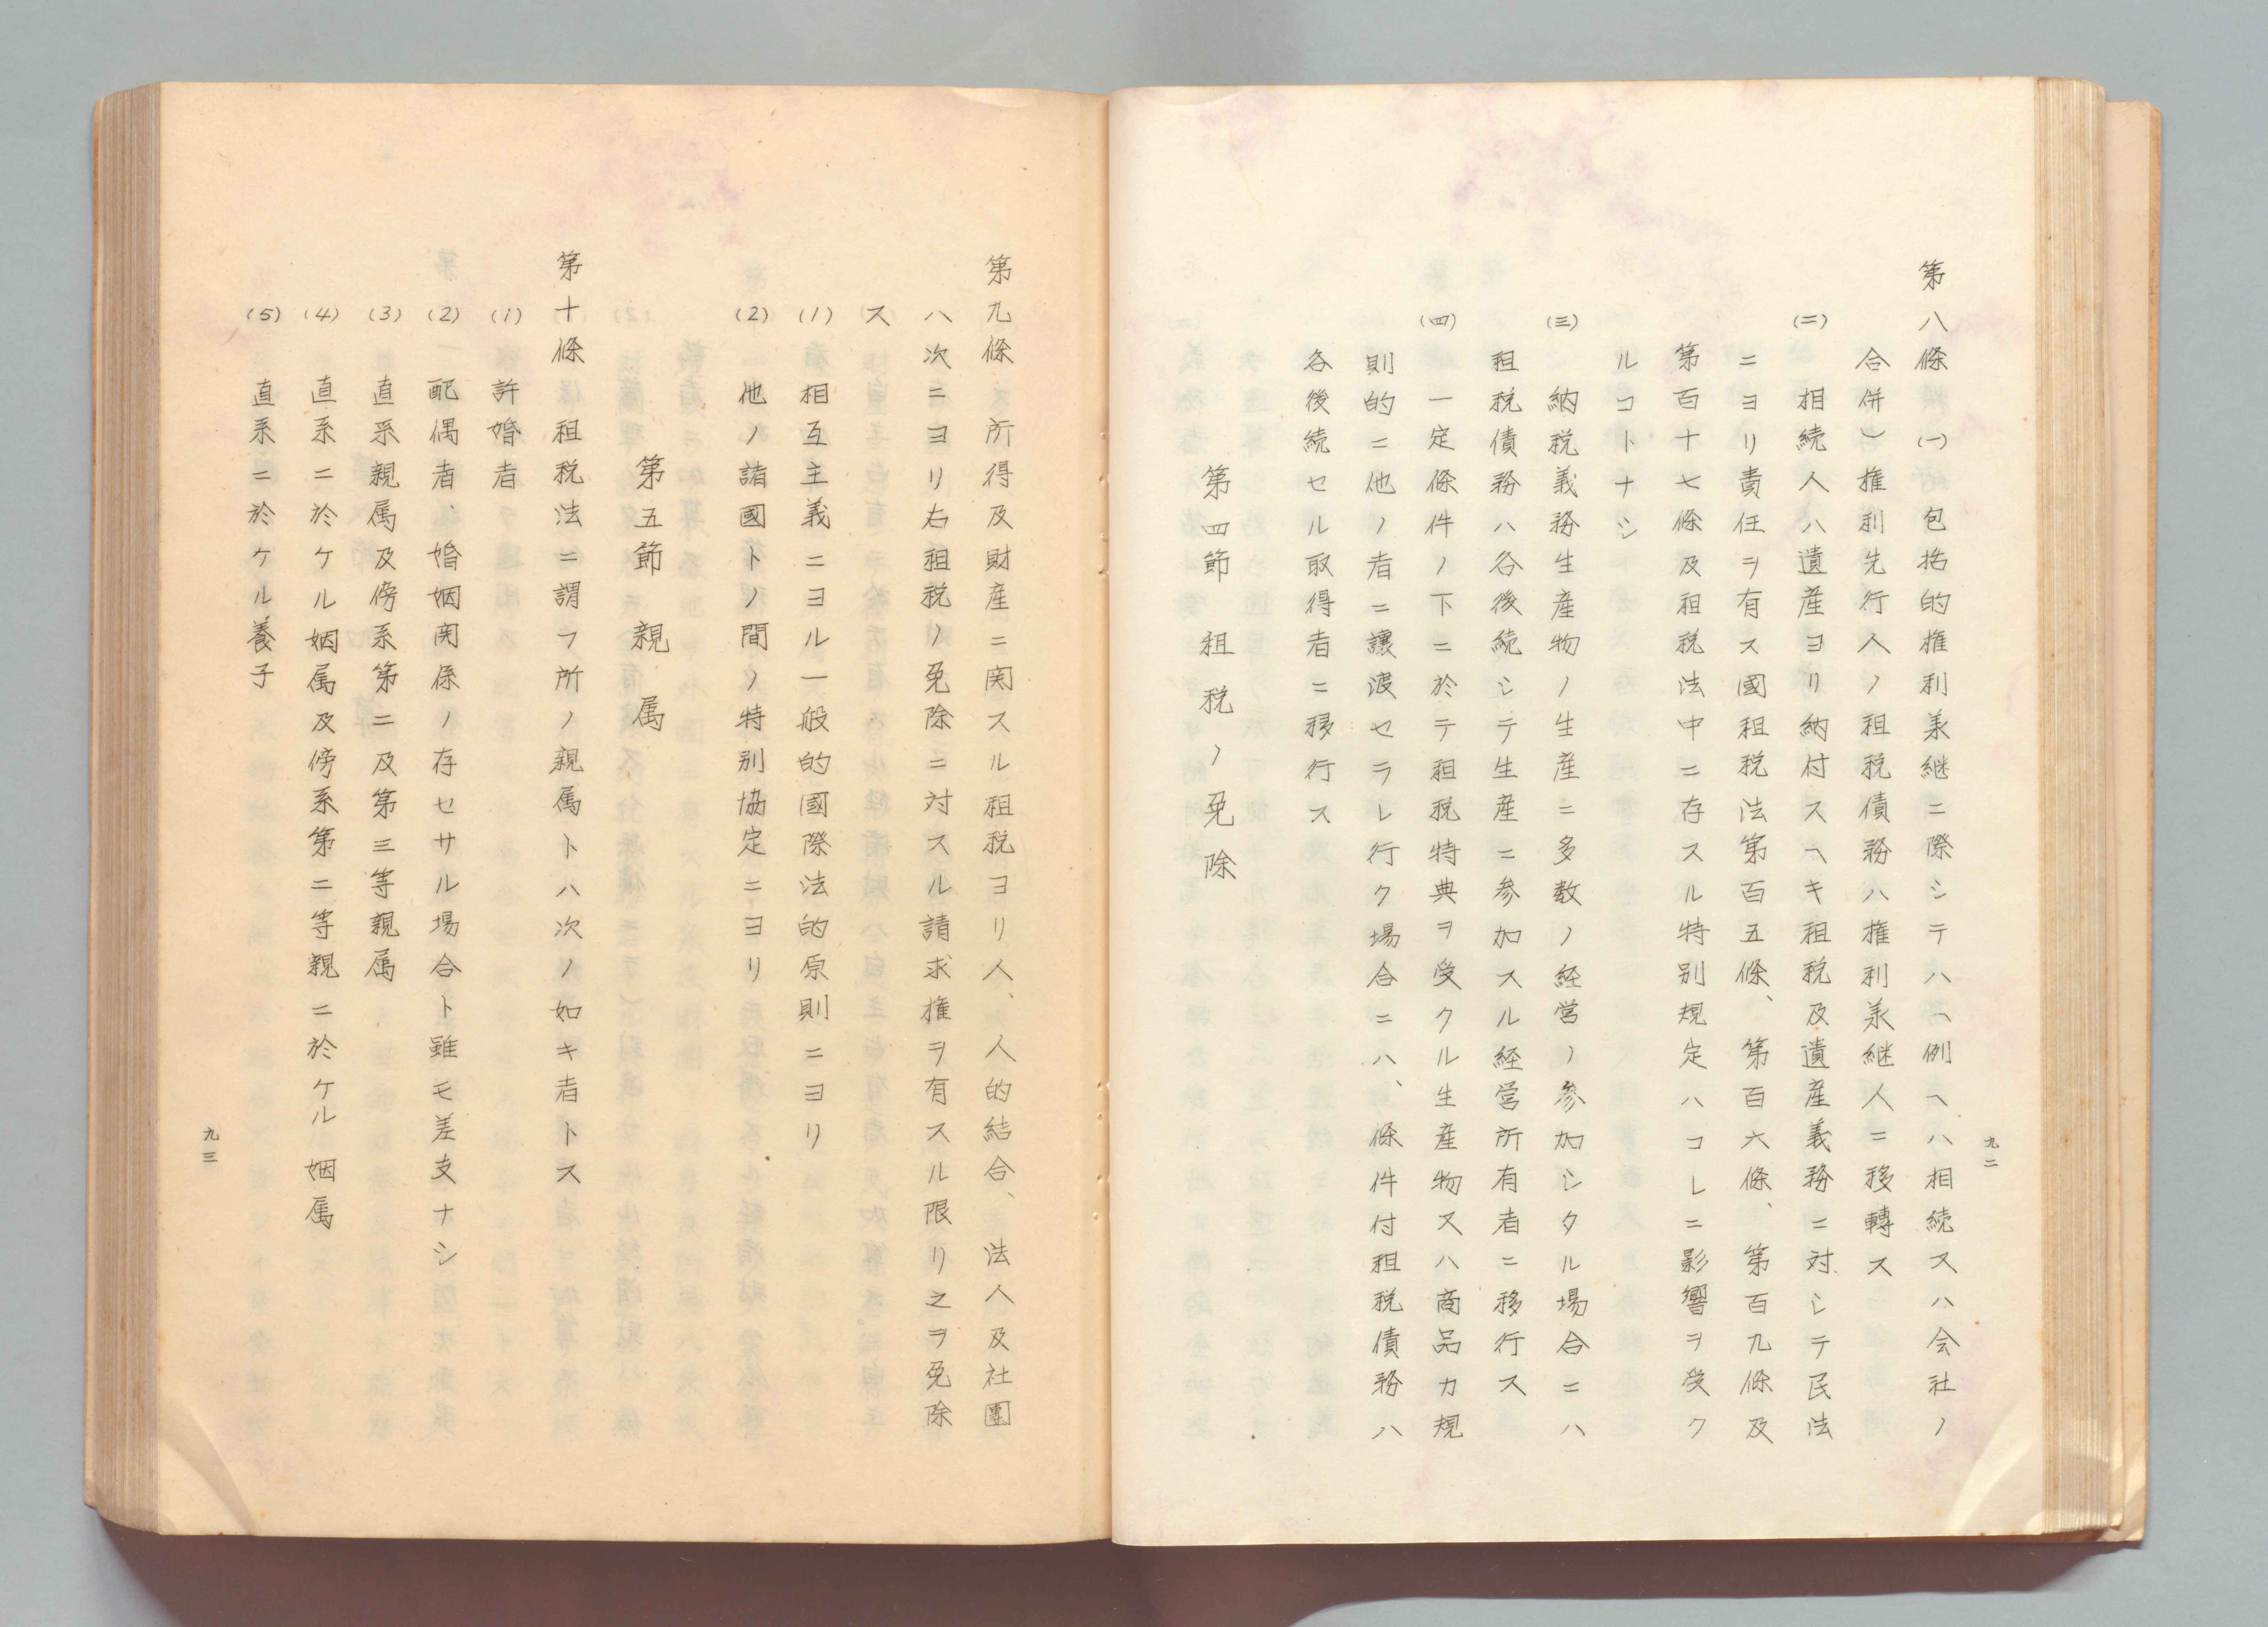 九二
第八條(一)包括的権利承継ニ際シテハヘ例ヘハ相続又ハ会社ノ
合併)権利先行人ノ租税債務ハ権利承継人ニ移轉ス
(二)相続人ハ遺産ヨリ納付スヘキ租税及遺産義務ニ対シテ民法
ニヨリ責任ヲ有ス國租税法第百五條、第百六條、第百九條及
第百十七條及租税法中ニ存スル特別規定ハコレニ影響ヲ受ク
ルコトナシ
(三)納税義務生産物ノ生産ニ多数ノ経営ノ参加シタル場合ニハ
租税債務ハ各後続シテ生産ニ参加スル経営所有者ニ移行ス
(四)一定條件ノ下ニ於テ租税特典ヲ受クル生産物又ハ商品カ規
則的ニ他ノ者ニ讓渡セラレ行ク場合ニハ、條件付租税債務ハ
各後続セル取得者ニ移行ス
第四節 租税ノ免除
第九條 所得及財産ニ関スル租税ヨリ人、人的結合、法人及社團
ハ次ニヨリ右租税ノ免除ニ対スル請求権ヲ有スル限リ之ヲ免除
ス
(1)相互主義ニヨル一般的國際法的原則ニヨリ
(2)他ノ諸國トノ間ノ特別協定ニヨリ
第五節 親属
第十條 租税法ニ謂フ所ノ親属トハ次ノ如キ者トス
(1)許婚者
(2)配偶者、婚姻関係ノ存セサル場合ト雖モ差支ナシ
(3)直系親属及傍系第二及第三等親属
(4)直系ニ於ケル姻属及傍系第二等親ニ於ケル姻属
(5)直系ニ於ケル養子
九三